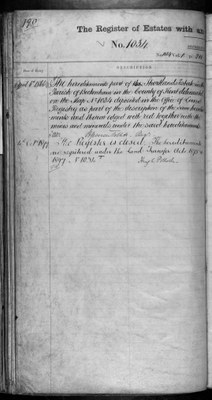 190
The Register of Estates with an
No. 1034
DESCRIPTION
The hereditaments part of the Shortlands Estate in the
Parish of Beckenham in the County of Kent delineated
on the Map No 1034 deposited in the Office of Land
Registry as part of the description of the same heredita
ments and thereon edged with red together with the
mines and minerals under the said hereditaments
The Register is closed. The hereditaments
are registered under the Land Transfer Acts 1875 &
1897. No